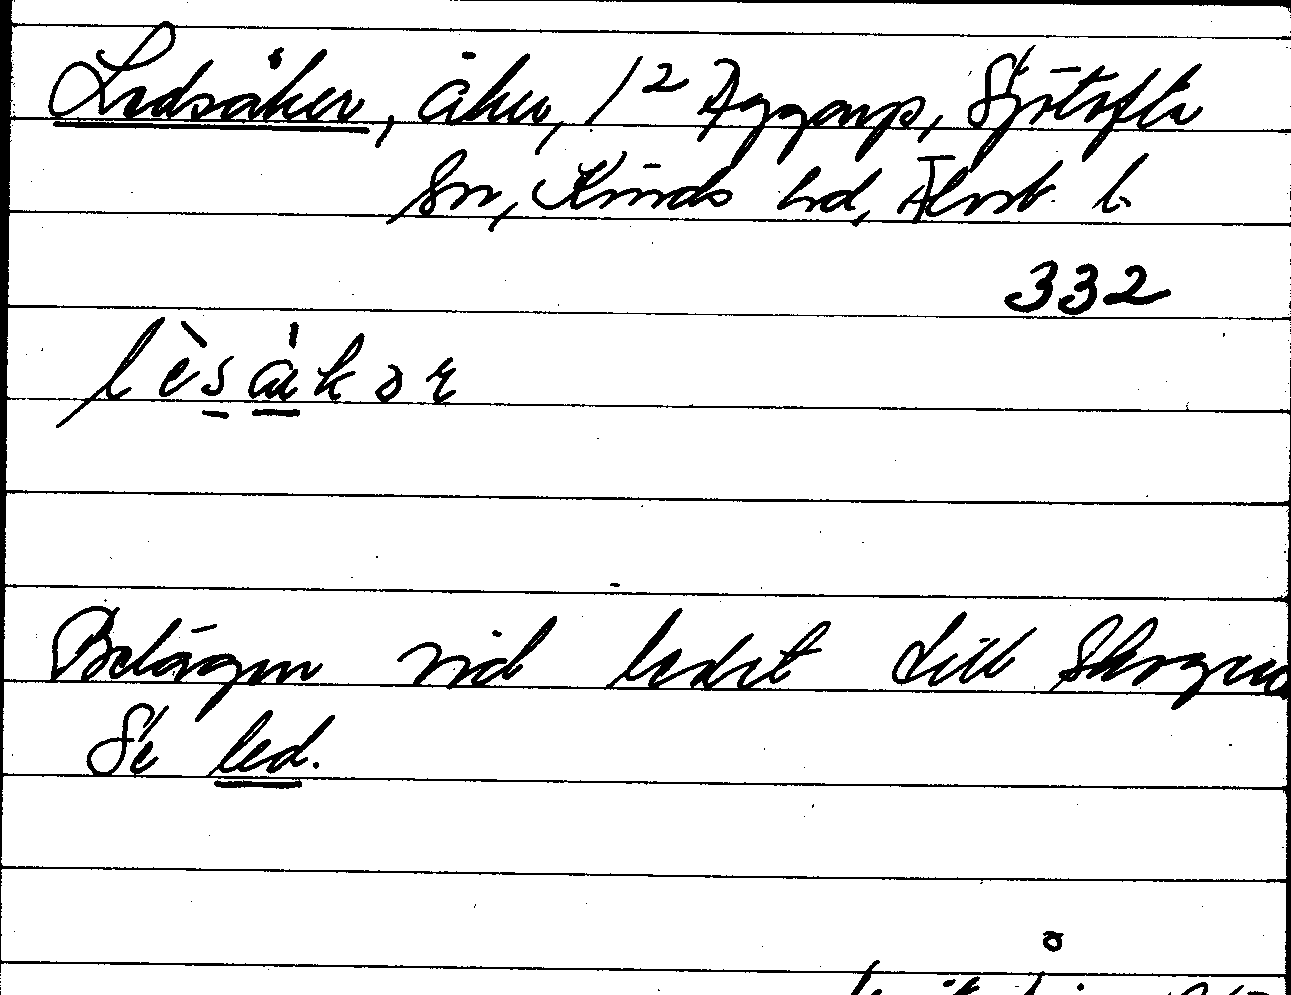 Ledsåker, åker, 1² Aggarp, Sjötofta
sn, Kinds hd, Älvsb. l.
332
lèsåkər
Belägen vid ledet till skogen
Se led.